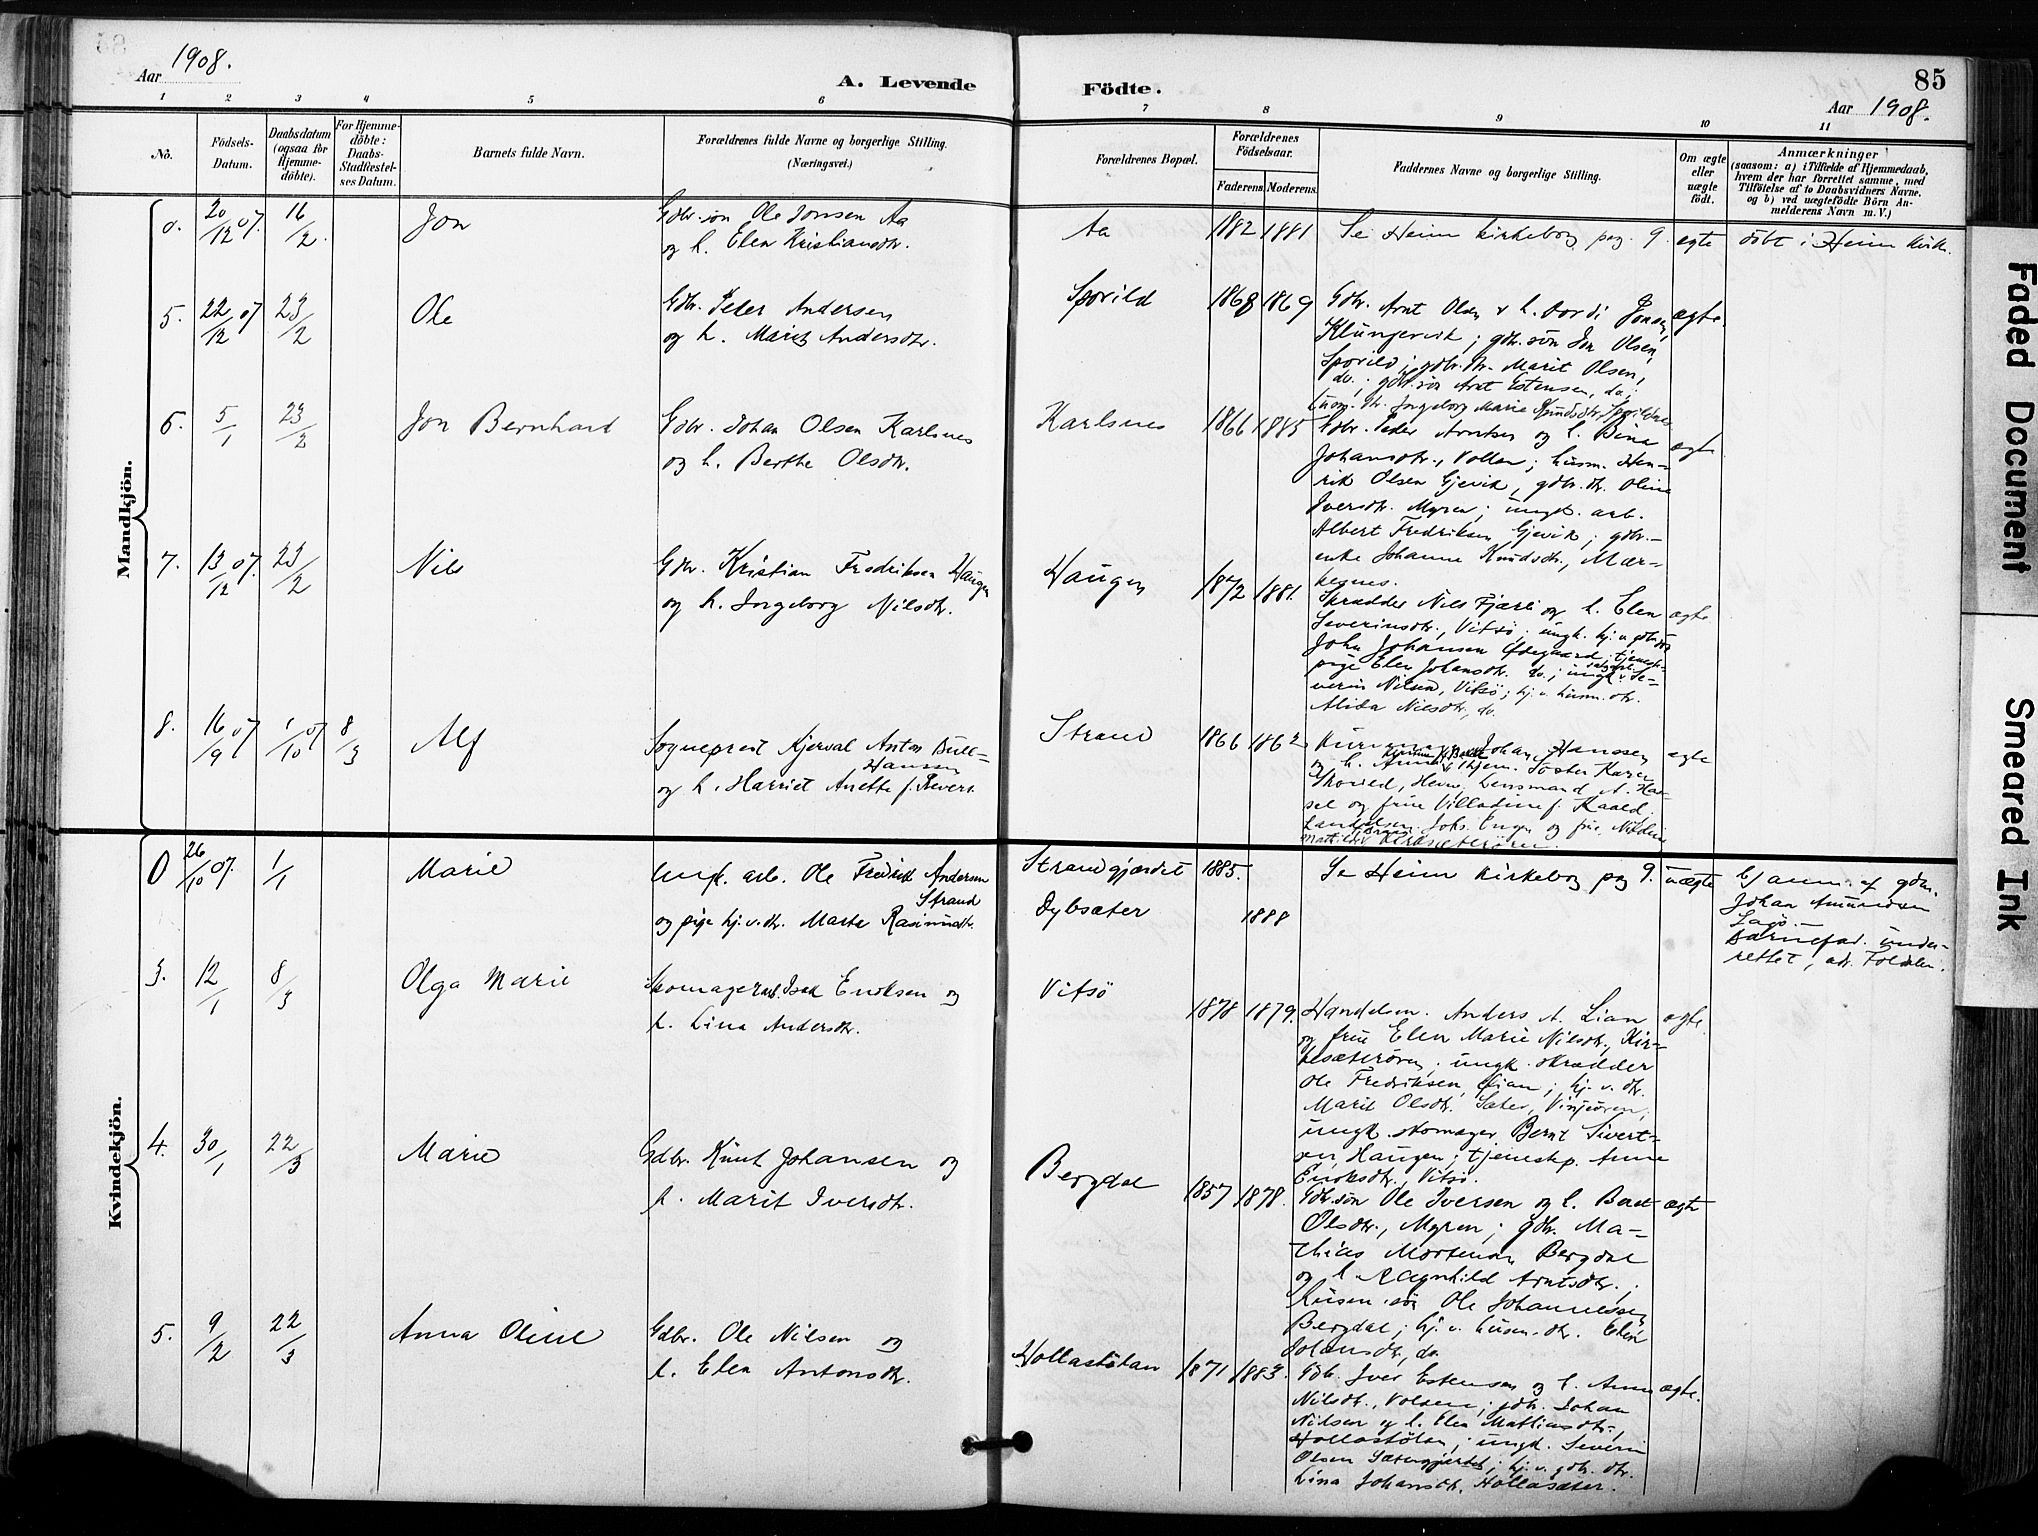 Aar 1908.
A. Levende Födte.
85
Aar 1908.
1 2 3 4 5 6 7 8 9 10 11
No.
Födsels-Datum.
Daabsdatum (ogsaa for Hjemme-döbte).
For Hjemme-döbte: Daabs-Stadfæstel-ses Datum.
Barnets fulde Navn.
Forældrenes fulde Navne og borgerlige Stilling. (Næringsvei.)
Forældrenes Bopæl.
Forældrenes Födselsaar.
Faderens. Moderens.
Faddernes Navne og borgerlige Stilling.
Om ægte eller uægte födt.
Anmærkninger
(saasom: a) i Tilfælde af Hjemmedaab, hvem der har forrettet samme, med Tilföielse af to Daabsvidners Navne, og b) ved uægtefödte Börn An-melderens Navn m. V.)
Mandkjön.
0. 20/12 07. 16/2. Jon
Gdbr.søn Ole Jonsen Aa
og h. Elen Kristiansdtr.
Aa 1882 1881 Se Heim kirkebog pag. 9. ægte döbt i Heim kirke.
5. 22/12 07 23/2 Ole
Gdbr. Peder Andersen
og h. Marit Andersdtr.
Sporild 1868 1869 Gdbr. Arnt Olsen & h. Jonsdtr. ægte.
Klungervik; gdbr.søn Jon Olsen
Sporild; gdbr.dtr. Marit Olsen,
do.; gdbr.søn Arnt Estensen, do.;
Ingeborg Marie Knudsdtr., Sporildnes
6. 5/1 23/2 Jon Bernhard
Gdbr. Johan Olsen Karlsnes
og h. Berthe Olsdtr.
Karlsnes 1866 1885 Gdbr. Peder Arntsen og h. Bina ægte
Johansdtr., Vollen; husm. Hen-
rik Olsen Gjevik, gdbr.dtr. Oline
Iversdtr. Myren; ungk. arb.
Albert Fredriksen Gjevik; gdbr.-
enke Johanne Knudsdtr., Mær-
kesnes.
7. 13/12 07. 23/2 Nils
Gdbr. Kristian Fredriksen Haugen
og h. Ingeborg Nilsdtr.
Haugen 1872 1881. Skrædder Nils Fjæreli og h. Elen ægte
Severinsdtr., Vitsø; ungk. hj. v. gdbr.søn
John Johansen Ødegaard; tjeneste-
pige Elen Johansdtr. do.; ungk. Se-
verin Nilsen, Vitsø; hj. v. husm. dtr.
Alida Nilsdtr., do.
8. 16/9 07 1/10 07 8/3 Alf
Sogneprest Kjerval Anton Bull-
Hanssen
og h. Harriet Anette f. Sievers.
Strand 1866 1862 Johan Hanssen ægte
og h. Søster Karen
Skovled, Hevne, Lensmand A. Has-
sel og frue Villadine f. Kaald,
Landhandler Johs. Engen og frue Nikoline
Mathilde, Kirksæterøren.
Kvindekjön.
0 26/10 07. 1/1 Marie
Ungk. arb. Ole Fredrik Andersen
Strand
og pige hj. v. dtr. Marta Rasmusdtr.
Strandgjærdet 1885. Se Heim kirkebog pag 9. uægte
Dybsæter 1888
Ej anm. af gdm.
Johan Amundsen
Sagø.
Barnefad. under-
rettet, adr. Foldalen.
3. 12/1 8/3 Olga Marie
Skomagerarb. Isak Eriksen og
h. Lina Andersdtr.
Vitsø 1878 1879. Handelsm. Anders A. Lian ægte.
og frue Elen Marie Nilsdtr., Kir-
kesæterøren; ungk. skrædder
Ole Fredriksen Lian; hj. v. dtr.
Marit Olsdtr. Sæter, Vinjeøren;
ungk. skomager Bernt Sivert-
sen Haugen; tjenestep. Anne
Eriksdtr., Vitsø.
4. 30/1 22/3 Marie
Gdbr. Knut Johansen og
h. Marit Iversdtr.
Bergdal 1857 1878. Gdbr.søn Ole Iversen og h. Beret ægte
Olsdtr., Myren; gdbr. Ma-
thias Mortensen Bergdal
og h. Ragnhild Arntsdtr.;
Husm.søn Ole Johannessen
Bergdal; hj. v. husm. dtr. Elen
Johansdtr., do.
5. 9/2 22/3 Anna Oline
Gdbr. Ole Nilsen og
h. Elen Antonsdtr.
Hollastølan 1871 1883. Gdbr. Iver Estensen og h. Anne ægte.
Nilsdtr., Volden; gdbr. Johan
Nilsen og h. Elen Mathiasdtr.,
Hollastølan; ungk. Severin
Olsen Sætergjerdet; hj. v. gdbr. dtr.
Lina Johansdtr., Hollasæter.
Faded Document
Smeared Ink